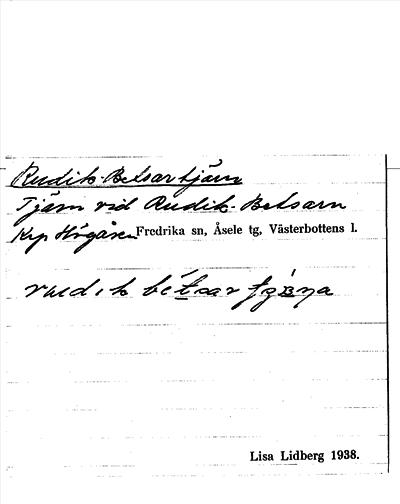 Rudik-Betsartjärn
Tjärn vid Rudik-Betsarn
Krp Högåsen Fredrika sn, Åsele tg, Västerbottens l.
rudik bétsar
Lisa Lidberg 1938.